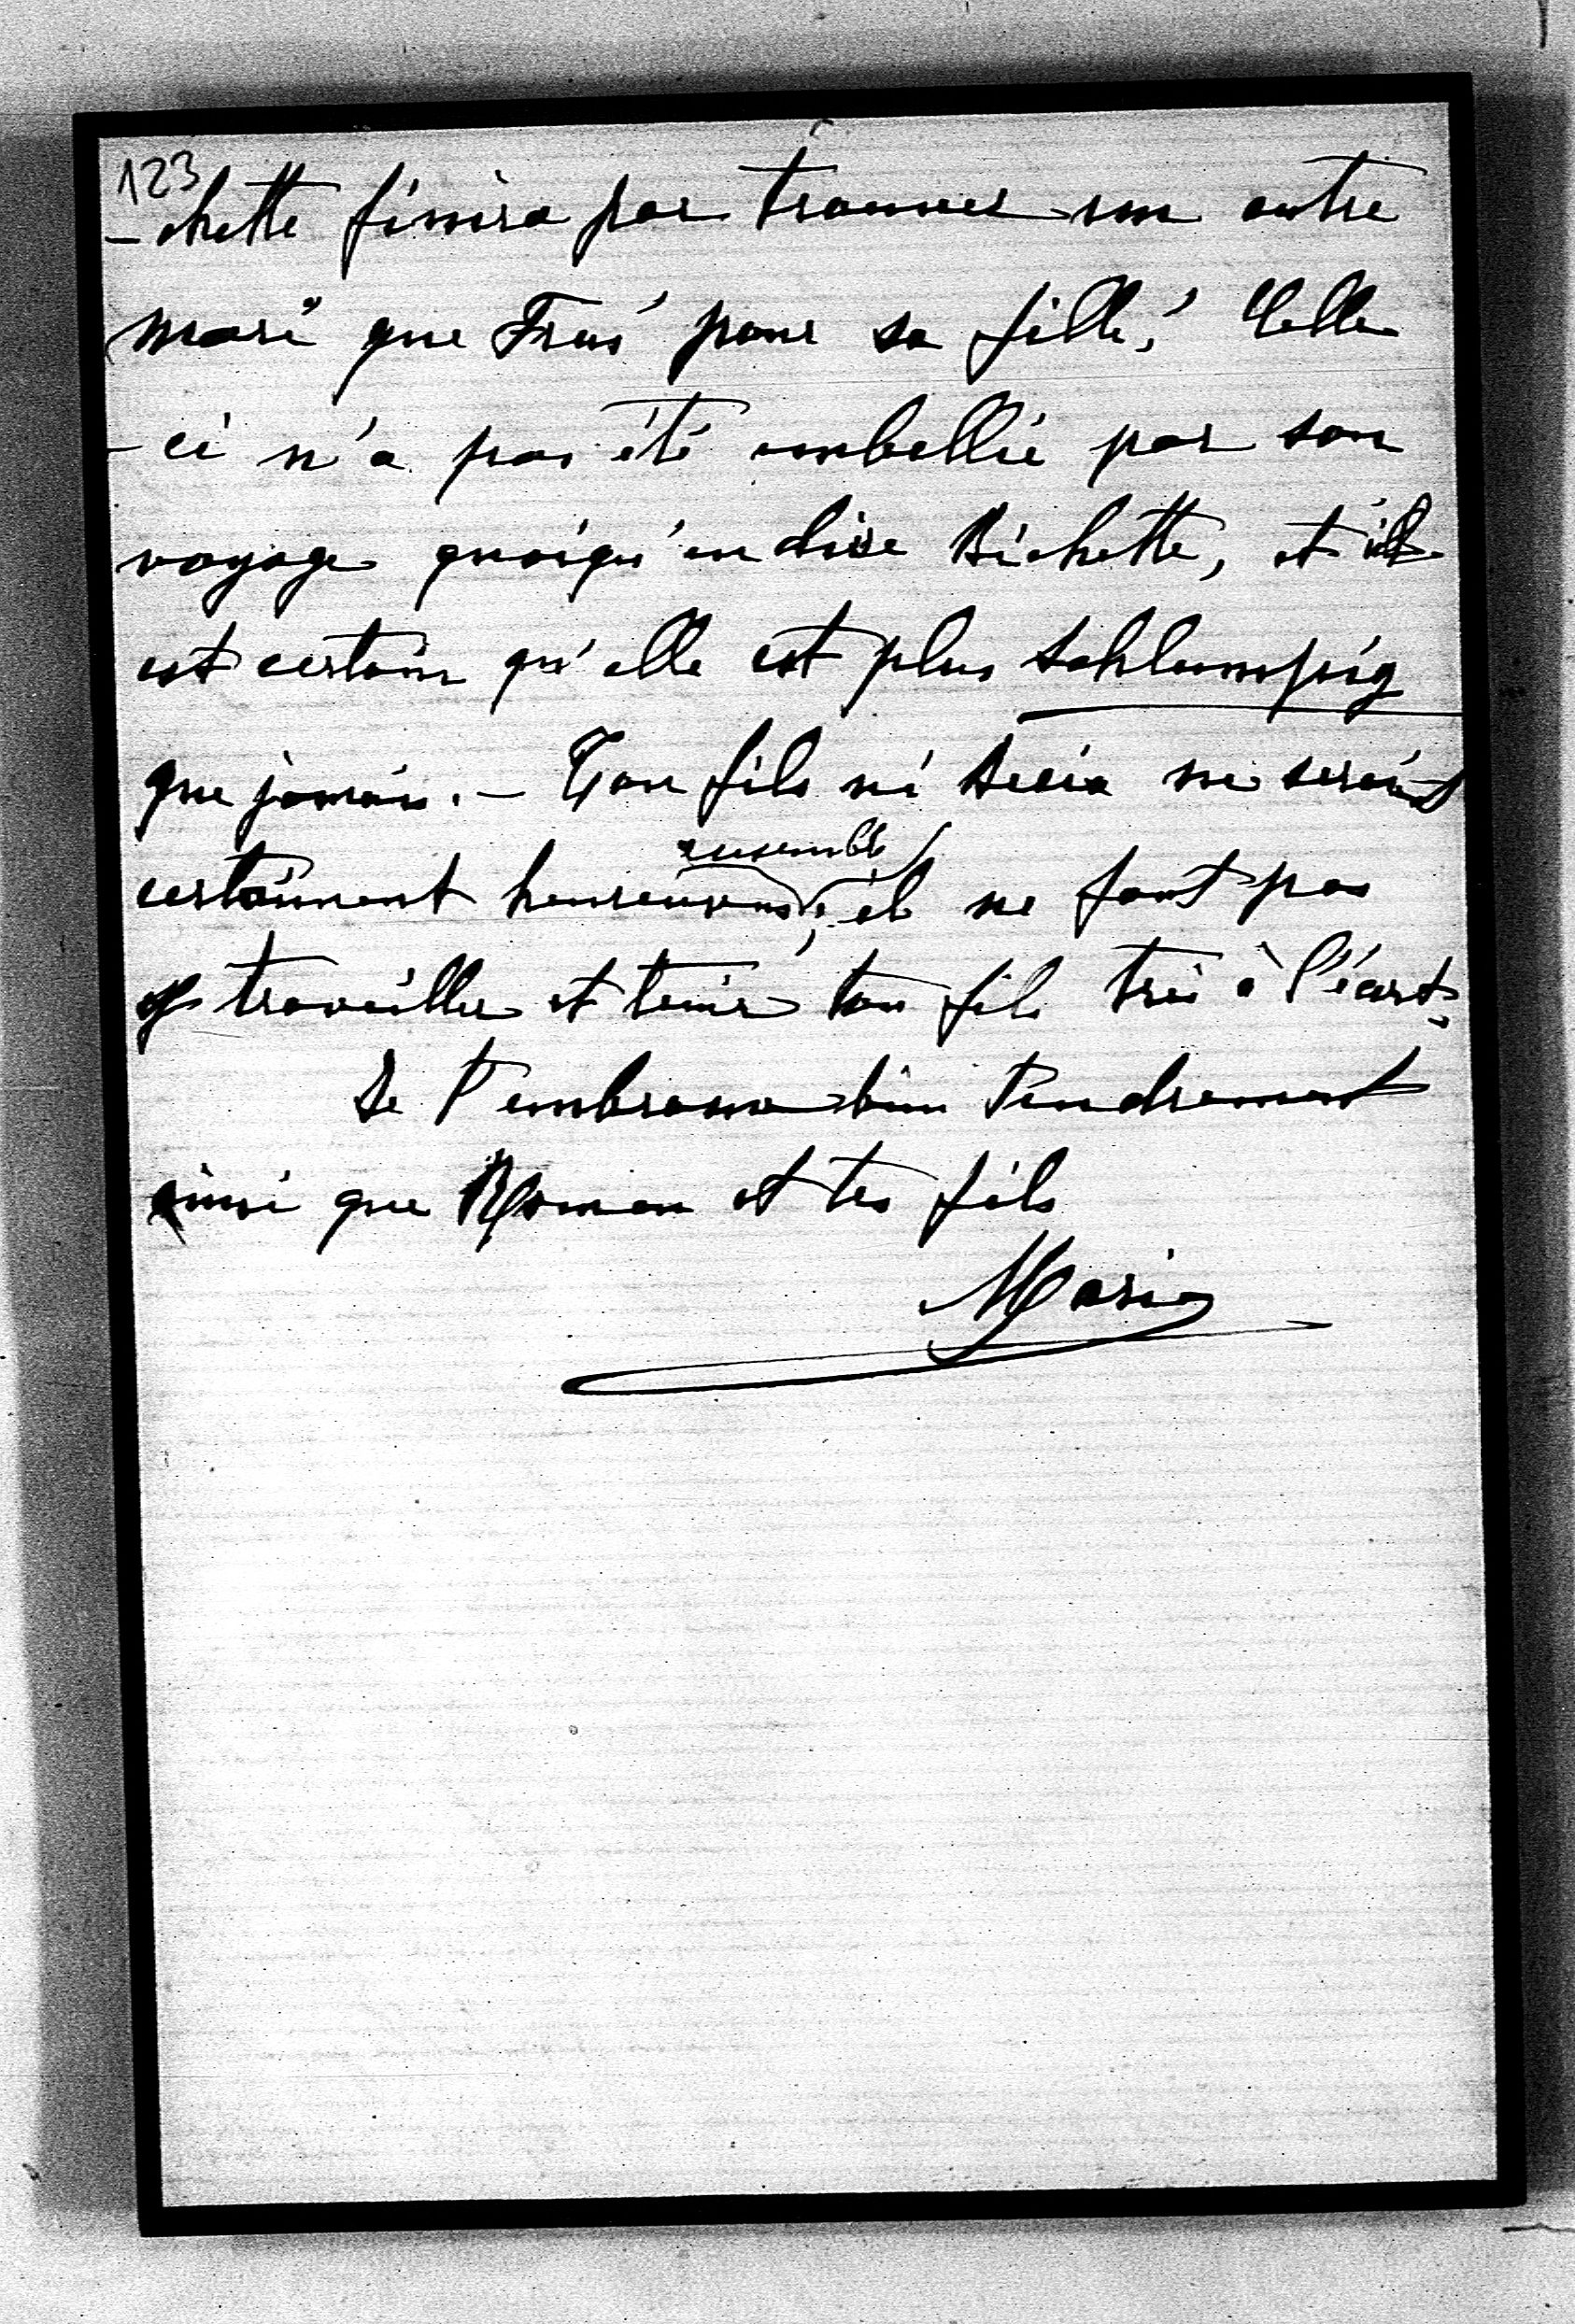 123
-chette finira par trouver un autre
mari que pour sa fille; Celle
-ci n'a pas été embellie par son
voyage quoiqu'en dise Bichette, et il
est certain qu'elle est plus schlumpig
que jamais. - Ton fils ni ne seraient
ensemble
certainement heureux, il ne faut pas
y travailler et tenir ton fils très à l'écart.
Je t'embrasse bien tendrement
ainsi que Roman et tes fils
Marie